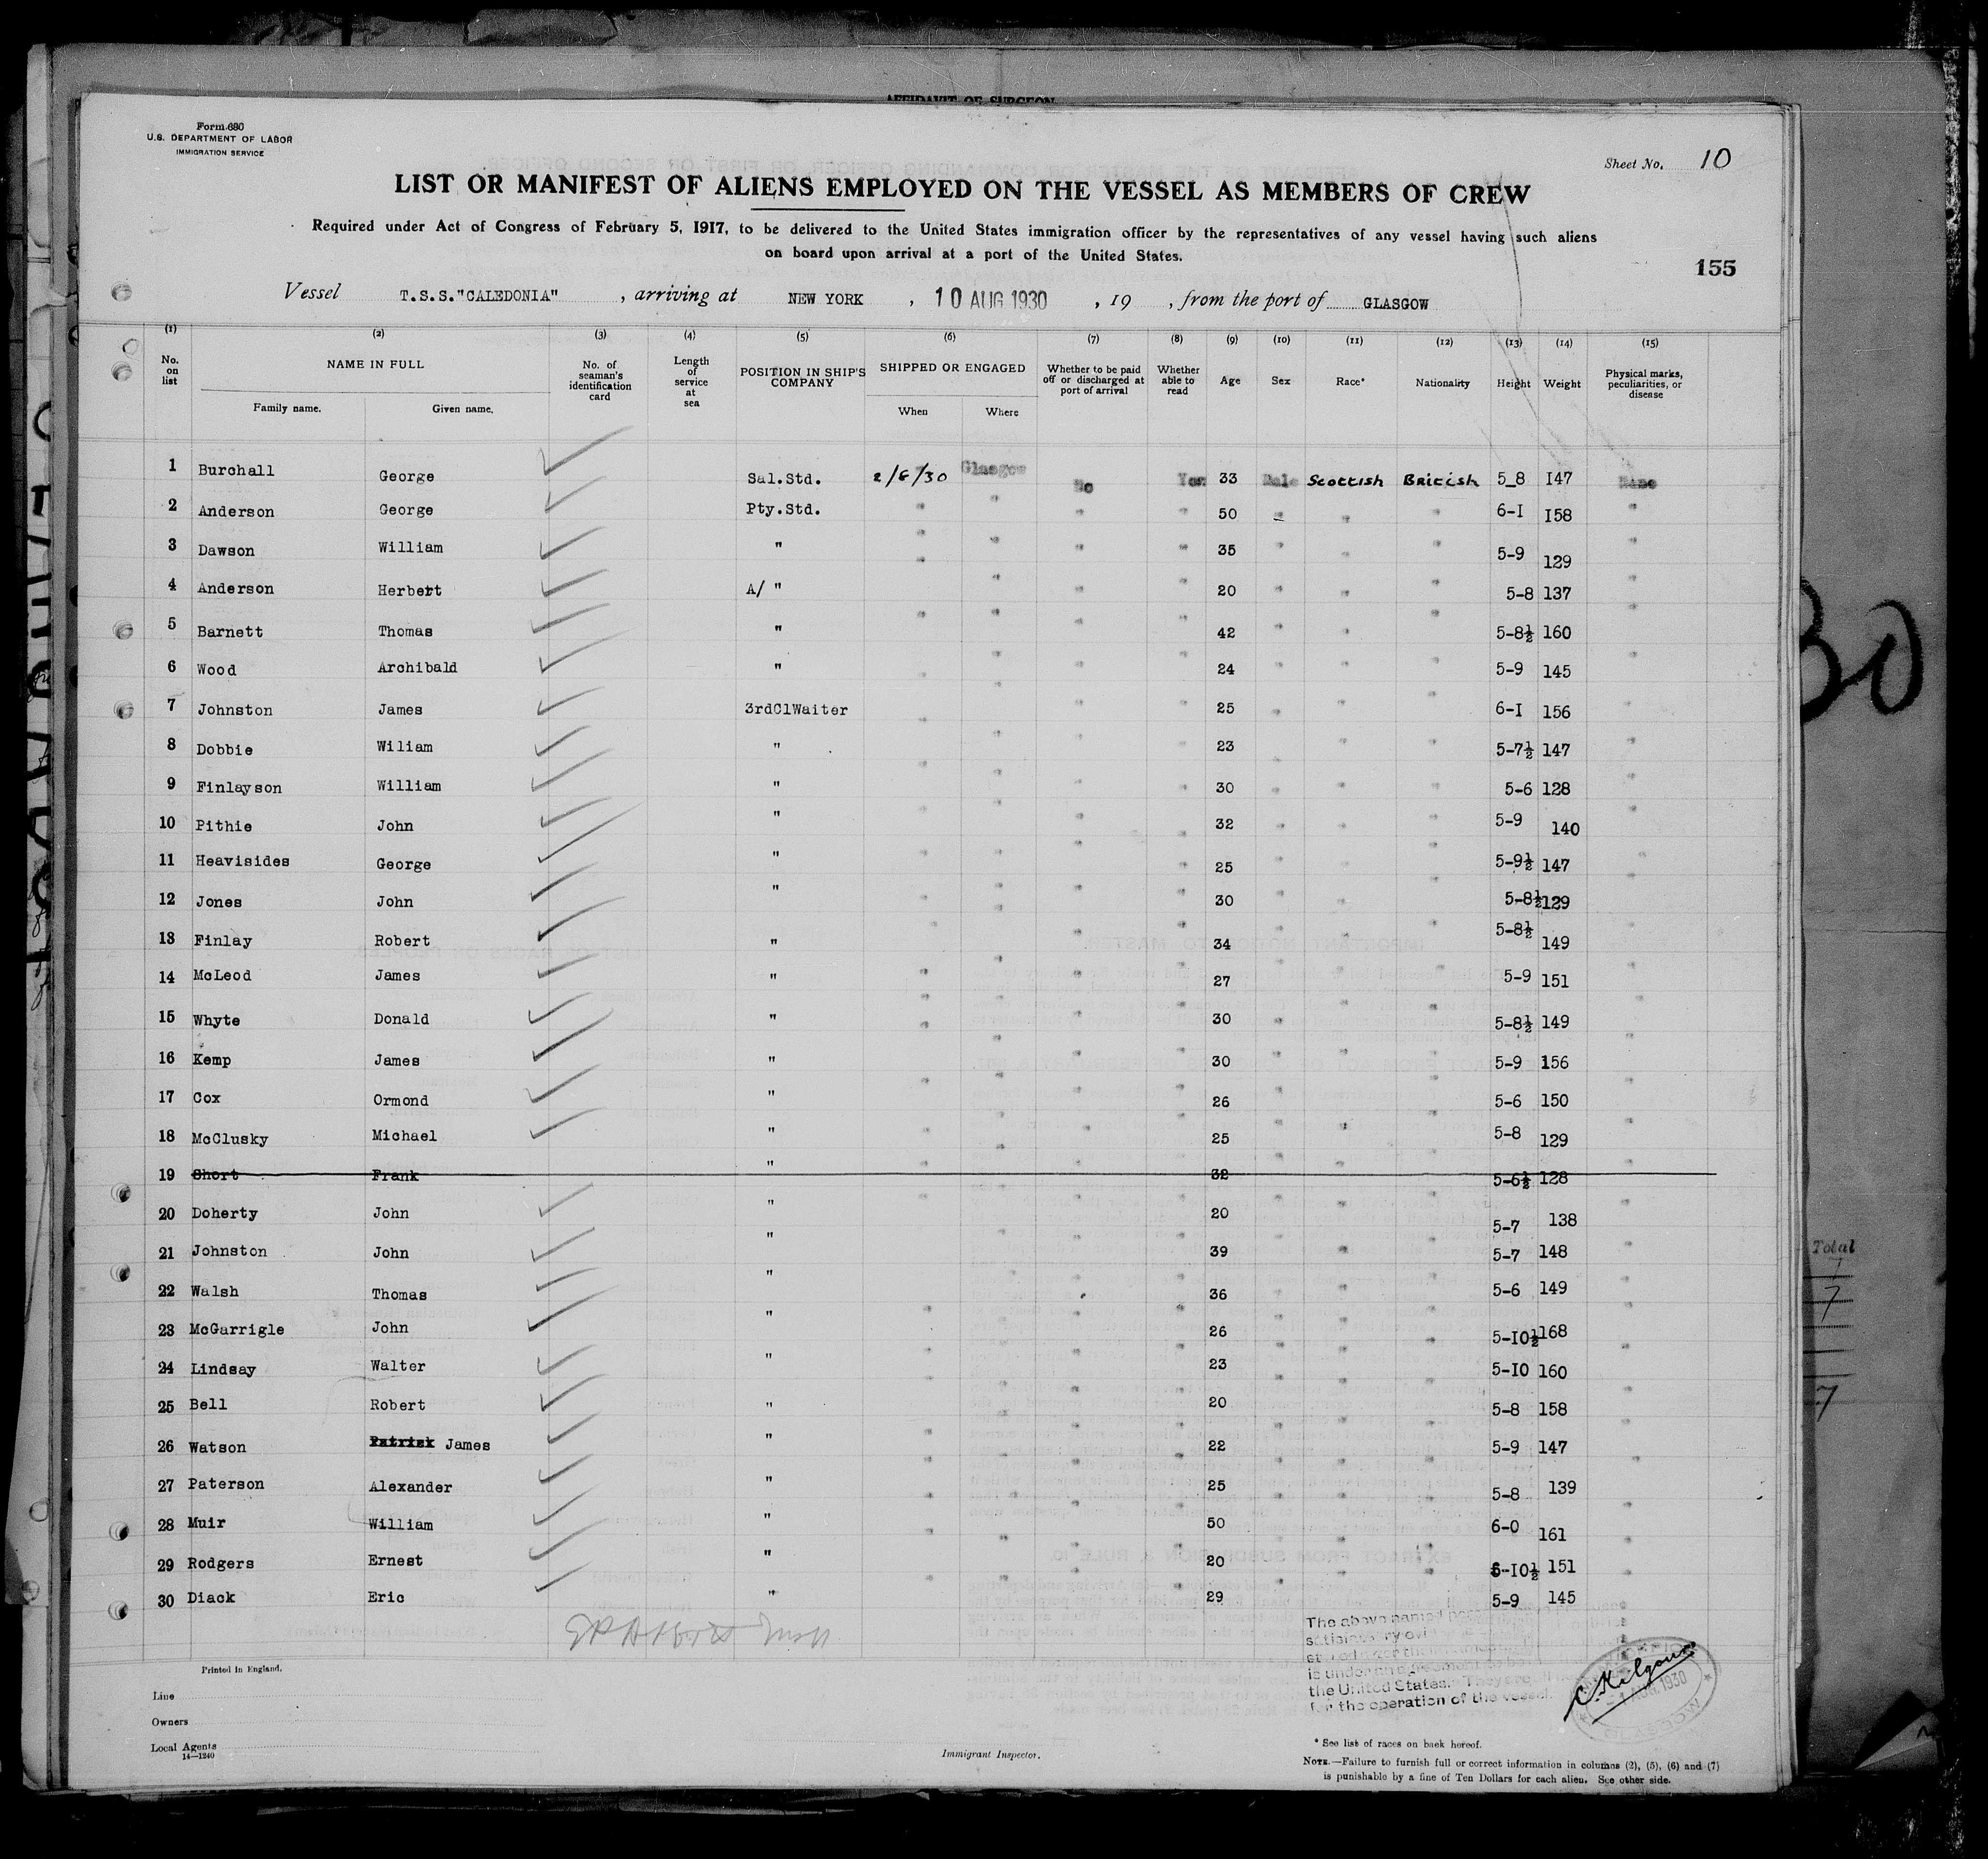 AFFIDAVIT OF SURGEON
Form 680
U.S. DEPARTMENT OF LABOR
IMMIGRATION SERVICE
Sheet No. 10
LIST OR MANIFEST OF ALIENS EMPLOYED ON THE VESSEL AS MEMBERS OF CREW
Required under Act of Congress of February 5, 1917, to be delivered to the United States immigration officer by the representatives of any vessel having such aliens
on board upon arrival at a port of the United States.
155
Vessel T.S.S."CALEDONIA" , arriving at NEW YORK , 10 AUG 1930 , 19 , from the port of GLASGOW
(1) (2) (3) (4) (5) (6) (7) (8) (9) (10) (11) (12) (13) (14) (15)
No. on list NAME IN FULL Family name. Given name. No. of seaman's identification card Length of service at sea POSITION IN SHIP'S COMPANY SHIPPED OR ENGAGED When Where Whether to be paid off or discharged at port of arrival Whether able to read Age Sex Race* Nationality Height Weight Physical marks, peculiarities, or disease
1 Burchall George Sal.Std. 2/8/30 Glasgow No Yes 33 Male Scottish British 5_8 147 None
2 Anderson George Pty.Std. " " " " 50 " " " 6-1 158 "
3 Dawson William " " " " " 35 " " " 5-9 129 "
4 Anderson Herbert A/ " " " " " 20 " " " 5-8 137 "
5 Barnett Thomas " " " " " 42 " " " 5-8½ 160 "
6 Wood Archibald " " " " " 24 " " " 5-9 145 "
7 Johnston James 3rdClWaiter " " " " 25 " " " 6-1 156 "
8 Dobbie Wiliam " " " " " 23 " " " 5-7½ 147 "
9 Finlayson William " " " " " 30 " " " 5-6 128 "
10 Pithie John " " " " " 32 " " " 5-9 140 "
11 Heavisides George " " " " " 25 " " " 5-9½ 147 "
12 Jones John " " " " " 30 " " " 5-8½ 129 "
13 Finlay Robert " " " " " 34 " " " 5-8½ 149 "
14 McLeod James " " " " " 27 " " " 5-9 151 "
15 Whyte Donald " " " " " 30 " " " 5-8½ 149 "
16 Kemp James " " " " " 30 " " " 5-9 156 "
17 Cox Ormond " " " " " 26 " " " 5-6 150 "
18 McClusky Michael " " " " " 25 " " " 5-8 129 "
19 Short Frank " " " " " 32 " " " 5-6½ 128 "
20 Doherty John " " " " " 20 " " " 5-7 138 "
21 Johnston John " " " " " 39 " " " 5-7 148 "
22 Walsh Thomas " " " " " 36 " " " 5-6 149 "
23 McGarrigle John " " " " " 26 " " " 5-10½ 168 "
24 Lindsay Walter " " " " " 23 " " " 5-10 160 "
25 Bell Robert " " " " " 20 " " " 5-8 158 "
26 Watson Patrick James " " " " " 22 " " " 5-9 147 "
27 Paterson Alexander " " " " " 25 " " " 5-8 139 "
28 Muir William " " " " " 50 " " " 6-0 161 "
29 Rodgers Ernest " " " " " 20 " " " 5-10½ 151 "
30 Diack Eric " " " " " 29 " " " 5-9 145 "
The above named
is under an agreement
the United States. They are
for the operation of the vessel.
C. Kilgour
AUG 1930
Printed in England.
Line
Owners
Local Agents
14—1240
Immigrant Inspector.
* See list of races on back hereof.
NOTE.—Failure to furnish full or correct information in columns (2), (5), (6) and (7)
is punishable by a fine of Ten Dollars for each alien. See other side.
30
Total
7
7